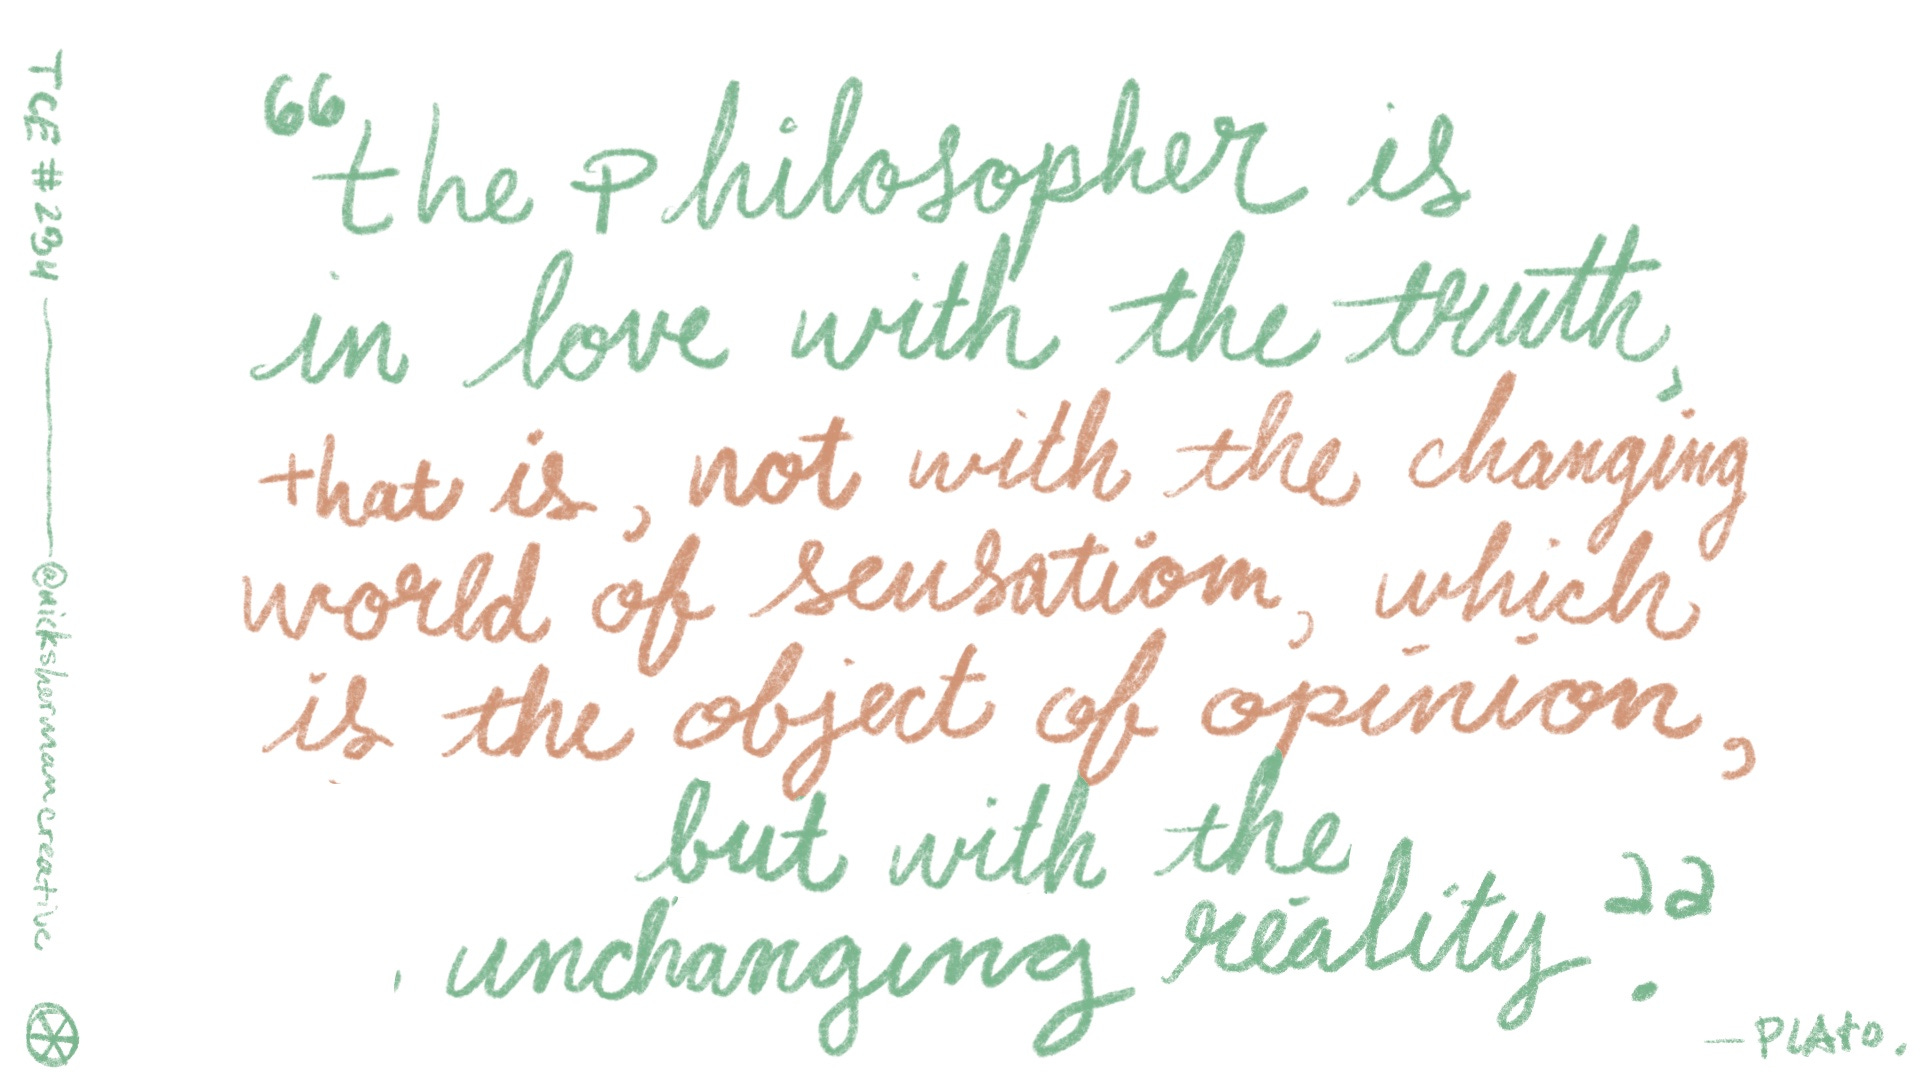 TCE # 234 — @nickshermancreative
“the Philosopher is
in love with the truth,
that is, not with the changing
world of sensation, which
is the object of opinion,
but with the
unchanging reality.”
—PLAtO.